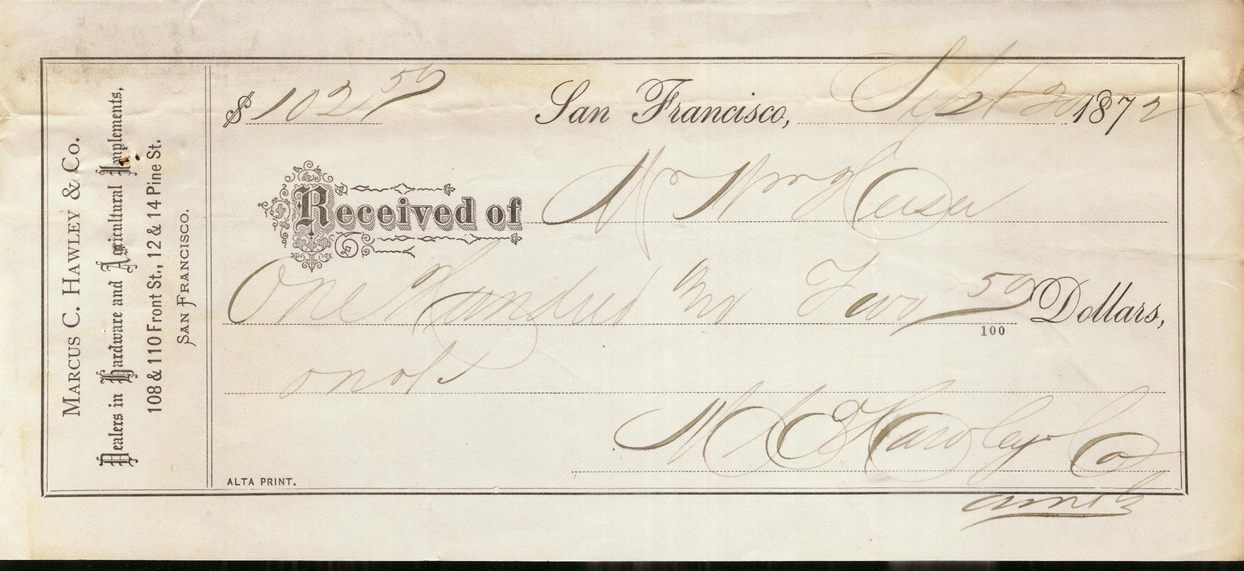 MARCUS C. HAWLEY & CO.
Dealers in Hardware and Agricultural Implements,
108 & 110 Front St., 12 & 14 Pine St.
SAN FRANCISCO.
$ 102 50 San Francisco, Sept 20 1872
Received of Mr Wm
One Hundred Two 50/100 Dollars,
on
M C Hawley Co
ALTA PRINT.